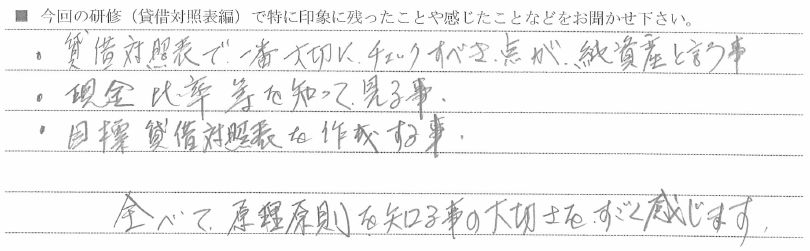 ■ 今回の研修（貸借対照表編）で特に印象に残ったことや感じたことなどをお聞かせ下さい。
・貸借対照表で、一番大切に、チェックすべき点が、純資産と言う事
・現金比率等を知って、見る事、
・目標貸借対照表を作成する事、
全べて、原理原則を知る事の大切さを、すごく感じます、